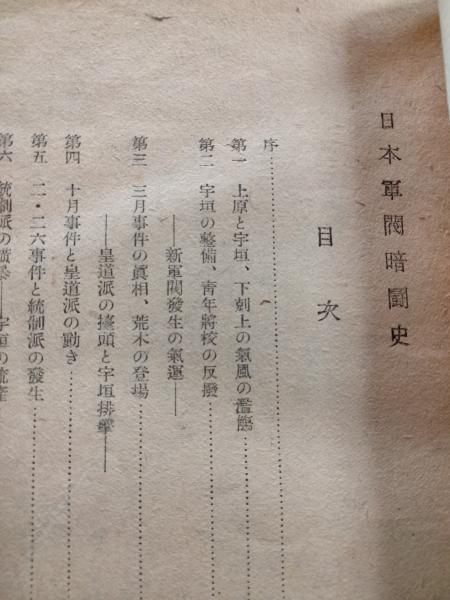 日本軍閥暗鬪史
目次
序
第一 上原と宇垣、下剋上の氣風の濫觴
第二 宇垣の整備、靑年將校の反撥
――新軍閥發生の氣運――
第三 三月事件の眞相、荒木の登場
――皇道派の擡頭と宇垣排擊――
第四 十月事件と皇道派の動き
第五 二・二六事件と統制派の發生
第六 統制派の橫暴――宇垣の流產